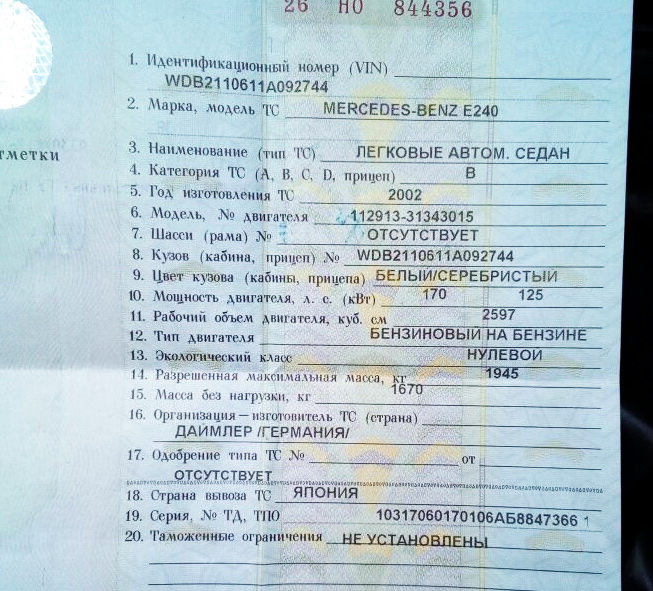 26 НО 844356
тметки
1. Идентификационный номер (VIN)
WDB2110611A092744
2. Марка, модель ТС MERCEDES-BENZ E240
3. Наименование (тип ТС) ЛЕГКОВЫЕ АВТОМ. СЕДАН
4. Категория ТС (А, В, С, D, прицеп) B
5. Год изготовления ТС 2002
6. Модель, № двигателя 112913-31343015
7. Шасси (рама) № ОТСУТСТВУЕТ
8. Кузов (кабина, прицеп) № WDB2110611A092744
9. Цвет кузова (кабины, прицепа) БЕЛЫЙ/СЕРЕБРИСТЫЙ
10. Мощность двигателя, л. с. (кВт) 170 125
11. Рабочий объем двигателя, куб. см 2597
12. Тип двигателя БЕНЗИНОВЫЙ НА БЕНЗИНЕ
13. Экологический класс НУЛЕВОЙ
14. Разрешенная максимальная масса, кг 1945
15. Масса без нагрузки, кг 1670
16. Организация – изготовитель ТС (страна)
ДАЙМЛЕР /ГЕРМАНИЯ/
17. Одобрение типа ТС № от
ОТСУТСТВУЕТ
18. Страна вывоза ТС ЯПОНИЯ
19. Серия, № ТД, ТПО 10317060170106АБ8847366 1
20. Таможенные ограничения НЕ УСТАНОВЛЕНЫ